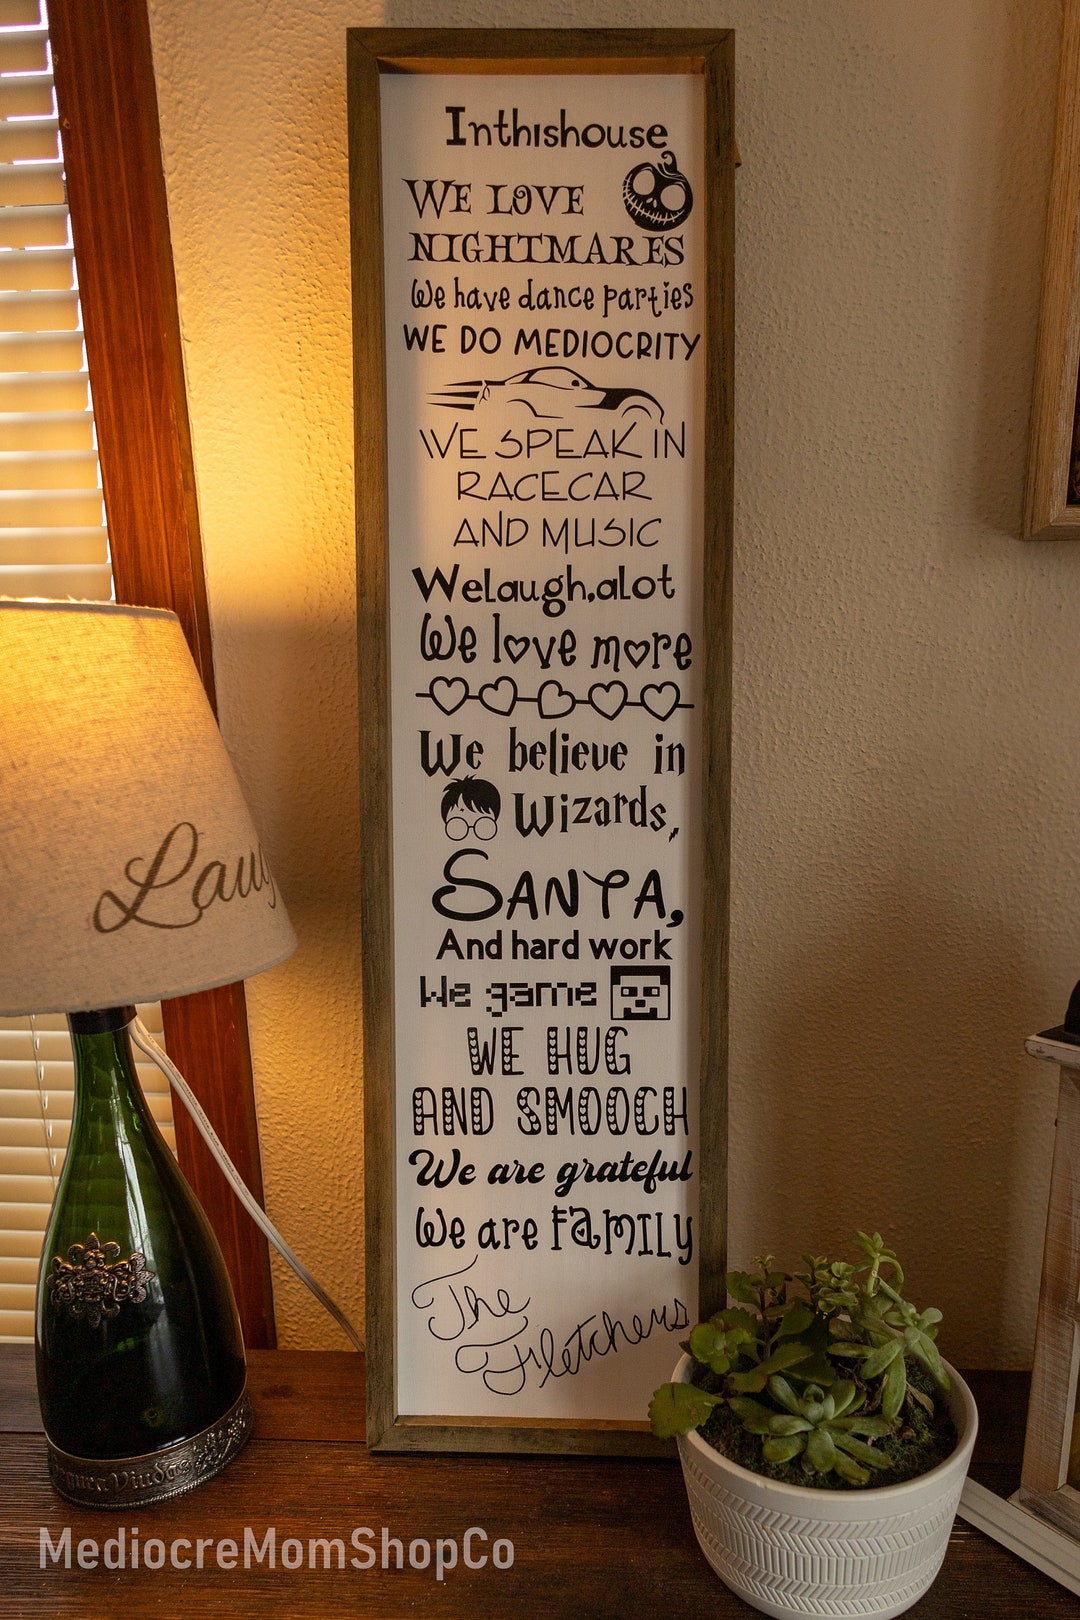 Inthishouse
WE LOVE
NIGHTMARES
We have dance parties
WE DO MEDIOCRITY
WE SPEAK IN
RACECAR
AND MUSIC
Welaugh,alot
We love more
We believe in
Wizards,
SANTA,
And hard work
We game
WE HUG
AND SMOOCH
We are grateful
We are FAMILY
The
Fletchers
Laug
MediocreMomShopCo